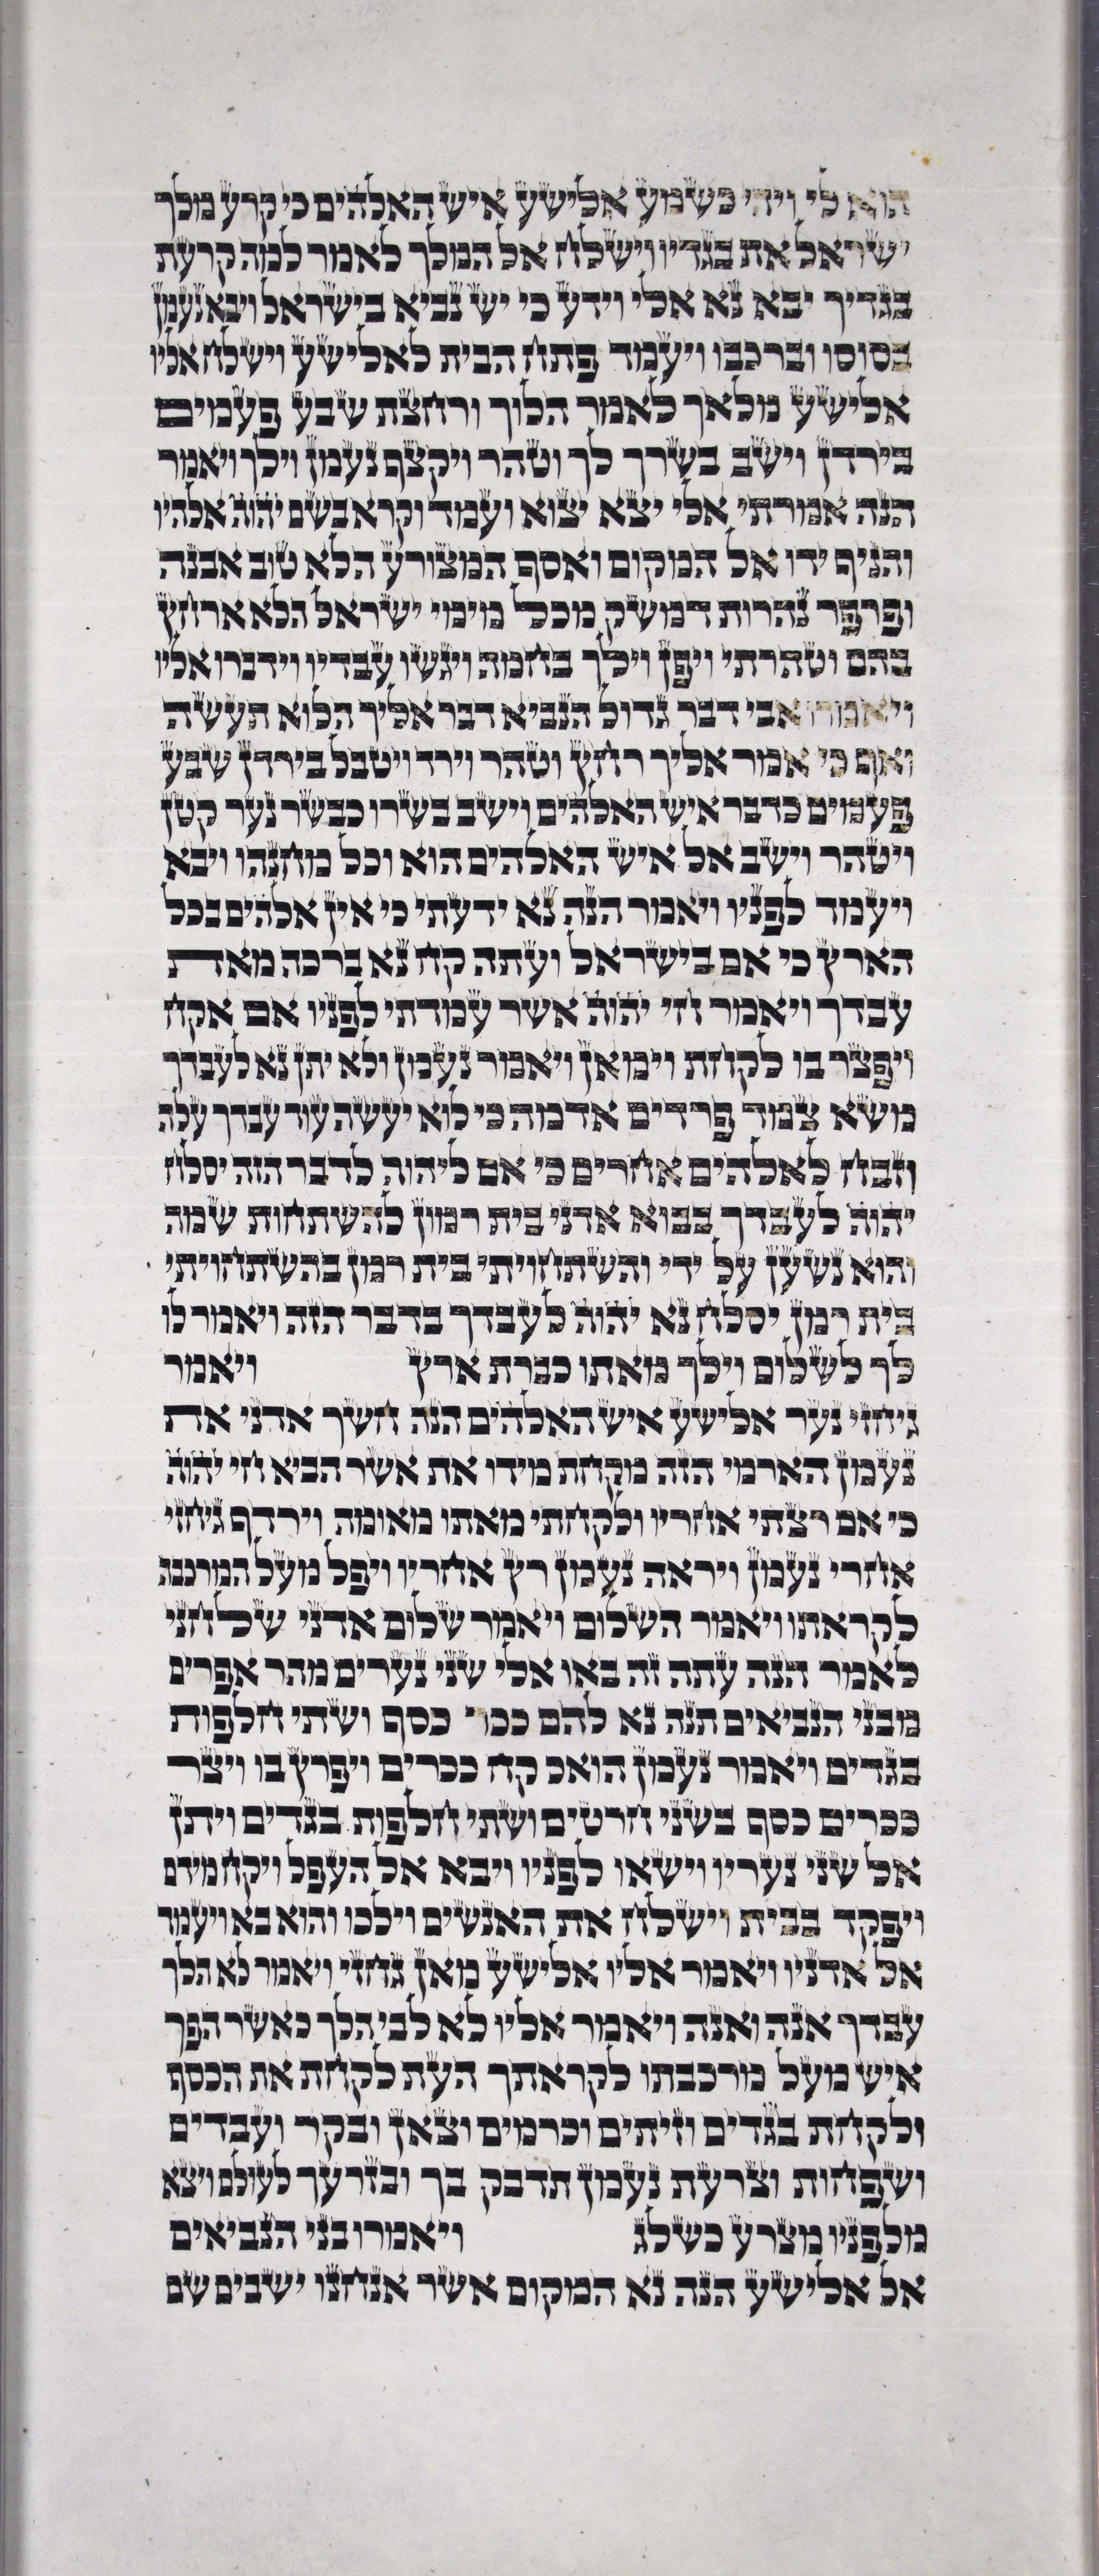 הוא לי ויהי כשמע אלישע איש האלהים כי קרע מלך
ישראל את בגדיו וישלח אל המלך לאמר למה קרעת
בגדיך יבא נא אלי וידע כי יש נביא בישראל ויבא נעמן
בסוסו וברכבו ויעמד פתח הבית לאלישע וישלח אליו
אלישע מלאך לאמר הלוך ורחצת שבע פעמים
בירדן וישב בשרך לך וטהר ויקצף נעמן וילך ויאמר
הנה אמרתי אלי יצא יצוא ועמד וקרא בשם יהוה אלהיו
והניף ידו אל המקום ואסף המצורע הלא טוב אבנה
ופרפר נהרות דמשק מכל מימי ישראל הלא ארחץ
בהם וטהרתי ויפן וילך בחמה ויגשו עבדיו וידברו אליו
ויאמרו אבי דבר גדול הנביא דבר אליך הלוא תעשה
ואף כי אמר אליך רחץ וטהר וירד ויטבל בירדן שבע
פעמים כדבר איש האלהים וישב בשרו כבשר נער קטן
ויטהר וישב אל איש האלהים הוא וכל מחנהו ויבא
ויעמד לפניו ויאמר הנה נא ידעתי כי אין אלהים בכל
הארץ כי אם בישראל ועתה קח נא ברכה מאת
עבדך ויאמר חי יהוה אשר עמדתי לפניו אם אקח
ויפצר בו לקחת וימאן ויאמר נעמן ולא יתן נא לעבדך
משא צמד פרדים אדמה כי לוא יעשה עוד עבדך עלה
וזבח לאלהים אחרים כי אם ליהוה לדבר הזה יסלח
יהוה לעבדך בבוא אדני בית רמון להשתחות שמה
והוא נשען על ידי והשתחויתי בית רמון בהשתחויתי
בית רמן יסלח נא יהוה לעבדך בדבר הזה ויאמר לו
לך לשלום וילך מאתו כברת ארץ ויאמר
גיחזי נער אלישע איש האלהים הנה חשך אדני את
נעמן הארמי הזה מקחת מידו את אשר הביא חי יהוה
כי אם רצתי אחריו ולקחתי מאתו מאומה וירדף גיחזי
אחרי נעמן ויראה נעמן רץ אחריו ויפל מעל המרכבה
לקראתו ויאמר השלום ויאמר שלום אדני שלחני
לאמר הנה עתה זה באו אלי שני נערים מהר אפרים
מבני הנביאים תנה נא להם ככר כסף ושתי חלפות
בגדים ויאמר נעמן הואל קח ככרים ויפרץ בו ויצר
ככרים כסף בשני חרטים ושתי חלפות בגדים ויתן
אל שני נעריו וישאו לפניו ויבא אל העפל ויקח מידם
ויפקד בבית וישלח את האנשים וילכו והוא בא ויעמד
אל אדניו ויאמר אליו אלישע מאן גחזי ויאמר לא הלך
עבדך אנה ואנה ויאמר אליו לא לבי הלך כאשר הפך
איש מעל מרכבתו לקראתך העת לקחת את הכסף
ולקחת בגדים וזיתים וכרמים וצאן ובקר ועבדים
ושפחות וצרעת נעמן תדבק בך ובזרעך לעולם ויצא
מלפניו מצרע כשלג ויאמרו בני הנביאים
אל אלישע הנה נא המקום אשר אנחנו ישבים שם